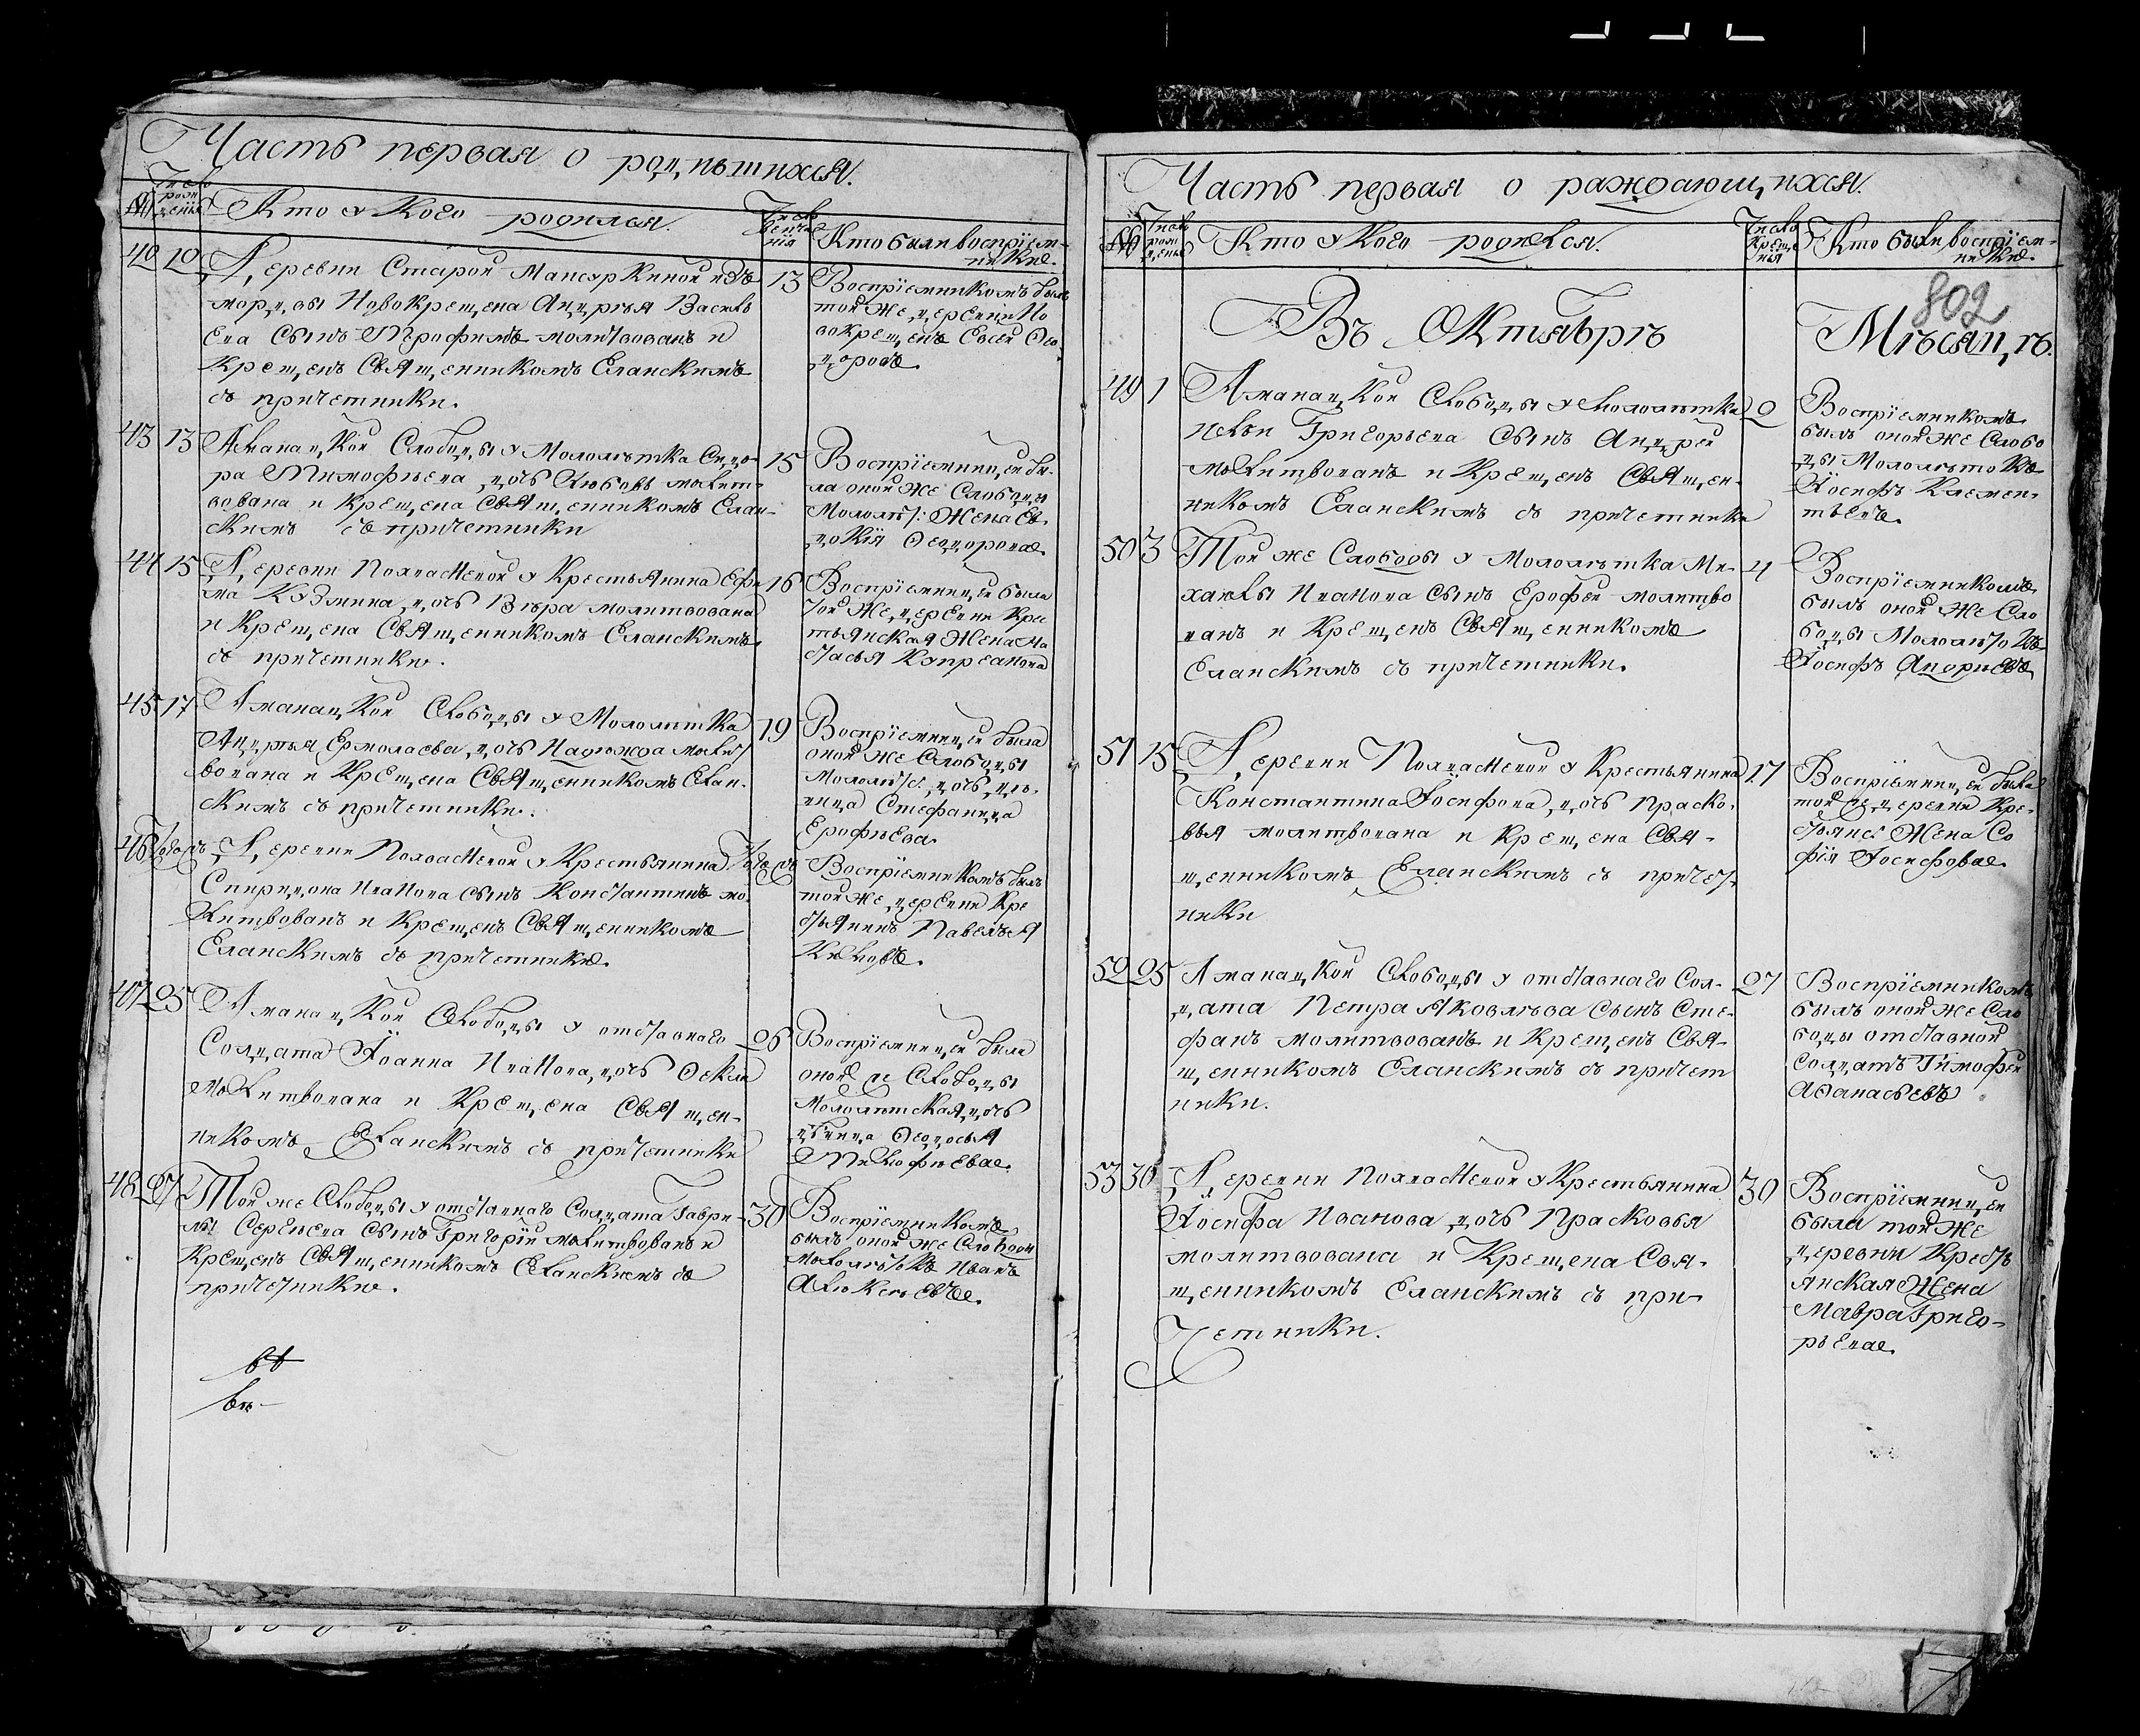 Часть первая о родившихся.
№
Число рождения
Кто у кого родился.
Число крещения
Кто были восприемники.
42 12
Деревни Старой Мансуркиной изъ
мордвы Новокрещена Андрѣя Василь
ева сынъ Трофимъ молитвованъ и
крещенъ священникомъ Еланскимъ
съ причетники.
13
Воспріемникомъ былъ
той же деревни Но
вокрещенъ Евсей Ѳео
доровъ.
43 13
Аманацкой Слободы у Малолѣтка Сидо-
ра Тимофѣева дочь Любовь молит-
вована и крещена священникомъ Елан-
скимъ съ причетники
15
Воспріемницей бы-
ла оной же Слободы
Малолѣт: жена Ев-
докія Ѳеодорова.
44 15
Деревни Полуастевой у крестьянина Ефи
ма Кузмина дочь Вѣра молитвована
и крещена священникомъ Еланскимъ
съ причетники.
16
Воспріемницей была
той же деревни кре
стьянская жена На
стасья Купреанова
45 17
Аманацкой Слободы у Малолѣтка
Андрѣя Ермолаева дочь Надежда молит
вована и крещена священникомъ Елан-
скимъ съ причетники.
19
Воспріемницей была
оной же Слободы
Малолѣт: дочь дѣ-
вица Стефанида
Ерофѣева.
46 Тогожъ
Деревни Полуастевой у крестьянина
Спиридона Иванова сынъ Константинъ мо-
литвованъ и крещенъ священникомъ
Еланскимъ съ причетники.
Тогожъ
Воспріемникомъ былъ
той же деревни кре
стьянинъ Павелъ
47 25
Аманацкой Слободы у отставнаго
Солдата Іоанна Иванова дочь Ѳекла
молитвована и крещена священ-
никомъ Еланскимъ съ причетники
26
Воспріемницей была
оной же Слободы
Малолѣтская дочь
дѣвица Ѳеодосья
Тимофѣева.
48 27
Той же Слободы у отставнаго Солдата Гаври-
лы Сергѣева сынъ Григорій молитвованъ и
крещенъ священникомъ Еланскимъ съ
причетники.
30
Воспріемникомъ
былъ оной же Слободы
малолѣтокъ Иванъ
Алексѣевъ.
Часть первая о раждающихся.
№
Число рожденія
Кто у кого родился.
Число крещения
Кто были восприемники.
802
Въ Октябрѣ Мѣсяцѣ.
49 1
Аманацкой Слободы у малолѣтка
Ильи Григорьева сынъ Андрей
молитвованъ и крещенъ священ-
никомъ Еланскимъ съ причетники
2
Воспріемникомъ
былъ оной же Слобо
ды Малолѣтокъ
Іосифъ Клемен-
тьевъ.
50 3
Той же Слободы у Малолѣтка Ми-
хайлы Иванова сынъ Ерофей молитво
ванъ и крещенъ священникомъ
Еланскимъ съ причетники.
4
Воспріемникомъ
былъ оной же Сло
боды Малолѣтокъ
Іосифъ Андріевъ.
51 15
Деревни Полуастевой у крестьянина
Константина Іосифова дочь Праско-
вья молитвована и крещена свя-
щенникомъ Еланскимъ съ причет-
ники
17
Воспріемницей была
той же деревни кре-
стьянс: жена Со
фія Іосифова.
52 25
Аманацкой Слободы у отставнаго Сол-
дата Петра Яковлева сынъ Сте-
фанъ молитвованъ и крещенъ свя-
щенникомъ Еланскимъ съ причет
ники.
27
Воспріемникомъ
былъ оной же Сло
боды отставной
солдатъ Тимофей
Афанасьевъ
53 30
Деревни Полуастевой у крестьянина
Іосифа Иванова дочь Прасковья
молитвована и крещена свя-
щенникомъ Еланскимъ съ при-
четники.
30
Воспріемницей
была той же
деревни кресть
янская жена
Мавра Григо-
рьева.